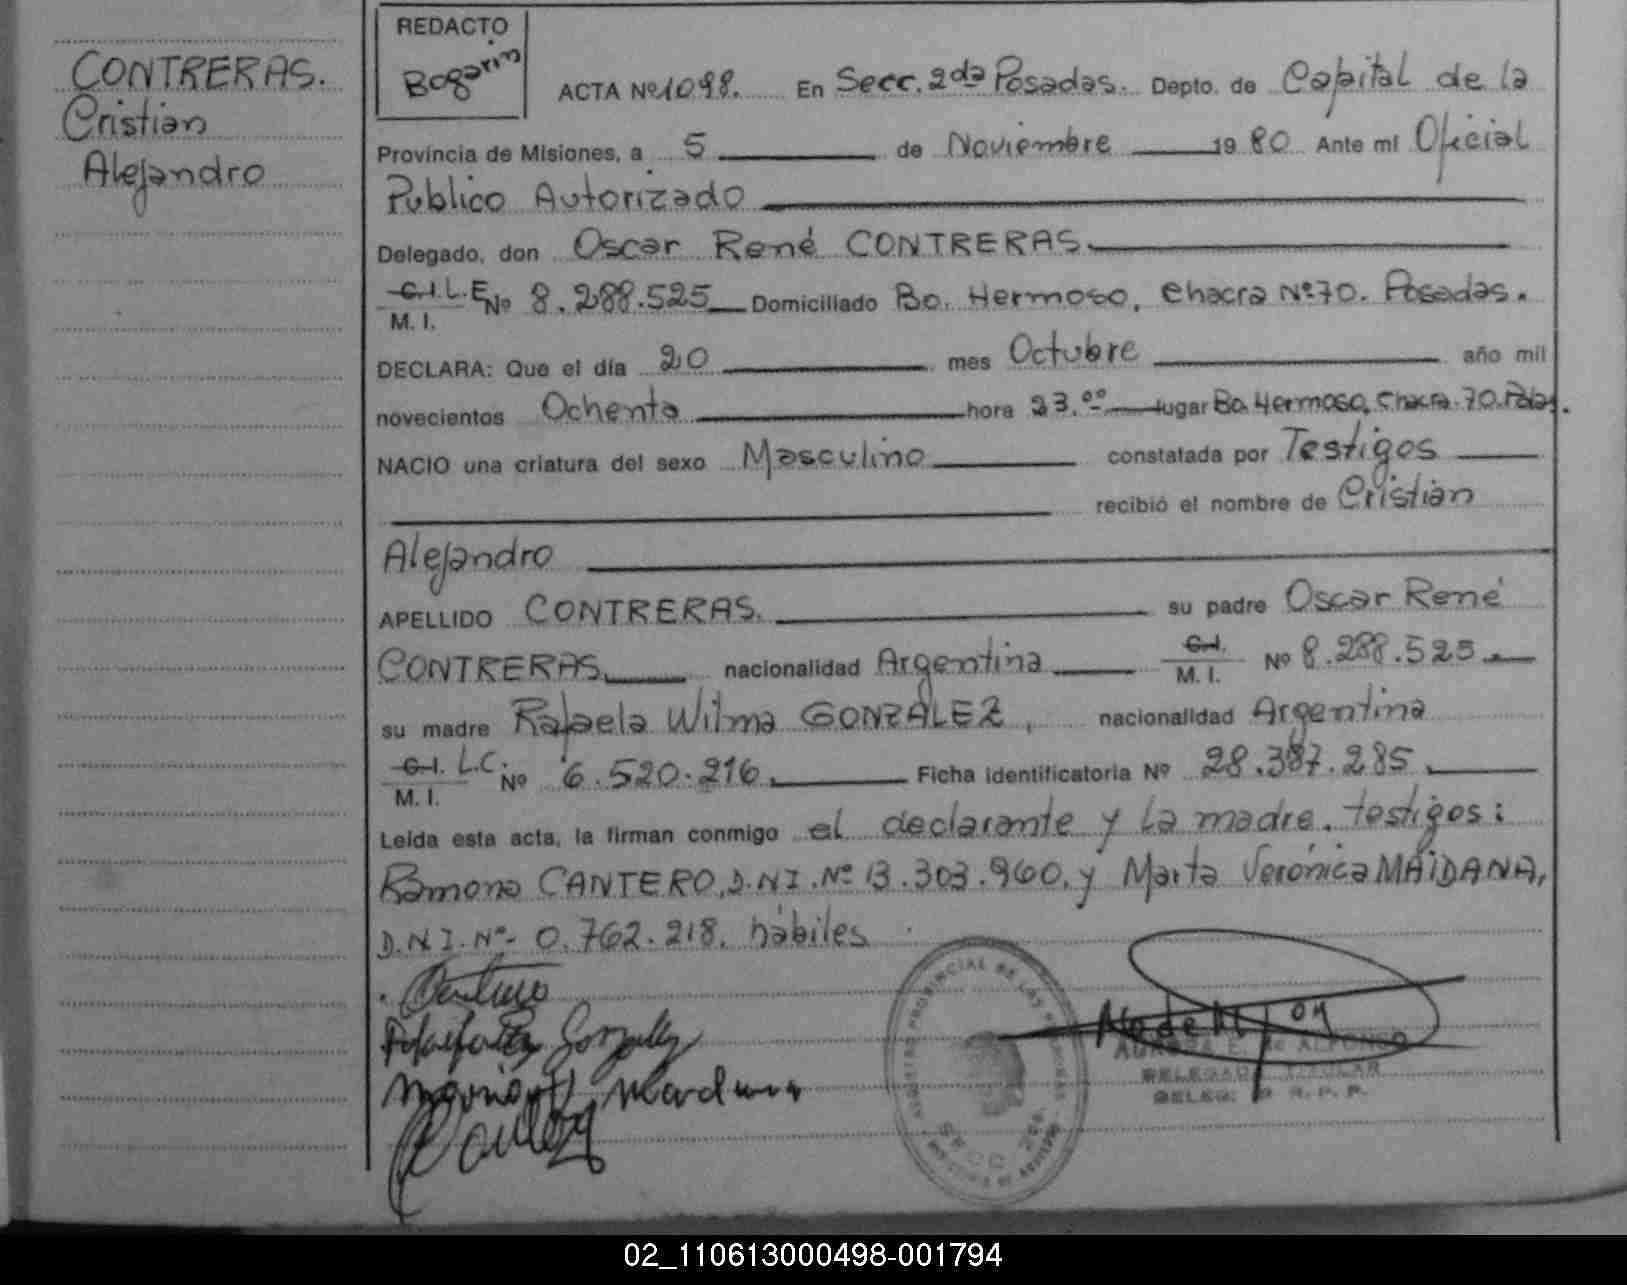 CONTRERAS.
Cristian
Alejandro
REDACTO
Bogarin
ACTA Nº 1098. En Secc. 2da Posadas. Depto. de Capital de la
Provincia de Misiones, a 5 de Noviembre 1980 Ante mi Oficial
Publico Autorizado
Delegado, don Oscar René CONTRERAS.
C.I. L.E. M. I. Nº 8.288.525 Domiciliado Bo. Hermoso, Chacra Nº 70. Posadas.
DECLARA: Que el día 20 mes Octubre año mil
novecientos Ochenta hora 23.00 lugar Bo. Hermoso, Chacra 70. Pdas.
NACIO una criatura del sexo Masculino constatada por Testigos
recibió el nombre de Cristian
Alejandro
APELLIDO CONTRERAS. su padre Oscar René
CONTRERAS. nacionalidad Argentina C.I. M. I. Nº 8.288.525.
su madre Rafaela Wilma GONZALEZ, nacionalidad Argentina
C.I. L.C. M. I. Nº 6.520.216. Ficha Identificatoria Nº 28.387.285.
Leida esta acta, la firman conmigo el declarante y la madre. testigos:
Ramona CANTERO, D.N.I. Nº 13.303.960, y Marta Verónica MAIDANA,
D.N.I. Nº- 0.762.218. hábiles
REGISTRO PROVINCIAL DE LAS PERSONAS
SECC 2da
AURORA E. de ALFONSO
DELEGADA TITULAR
DELEG. R. P. P.
02_110613000498-001794